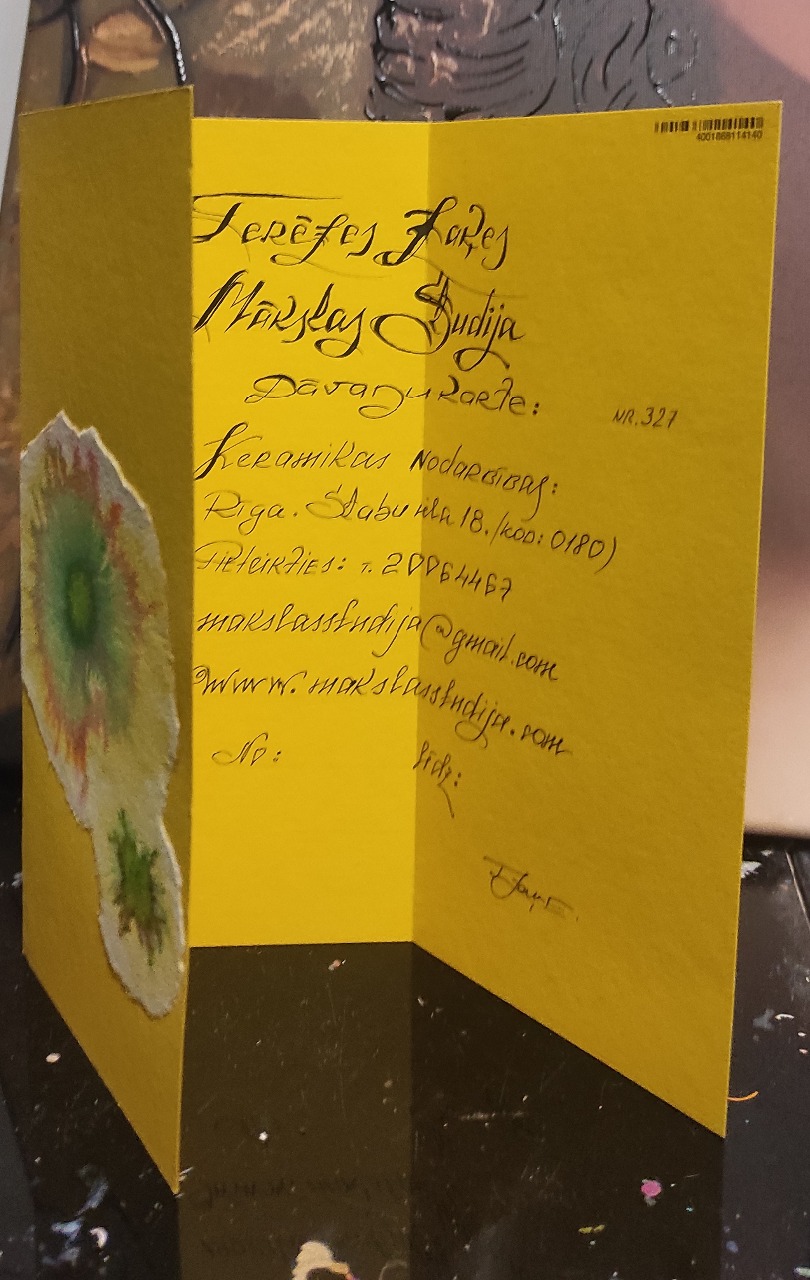 4001868114140
Terēzes Zaķes
Mākslas Studija
Dāvaņu karte: NR. 327
Keramikas Nodarbības:
Rīga. Stabu iela 18. /kod: 0180)
Pieteikties: T. 20064467
makslasstudija@gmail.com
www.makslasstudija.com
No: līdz: